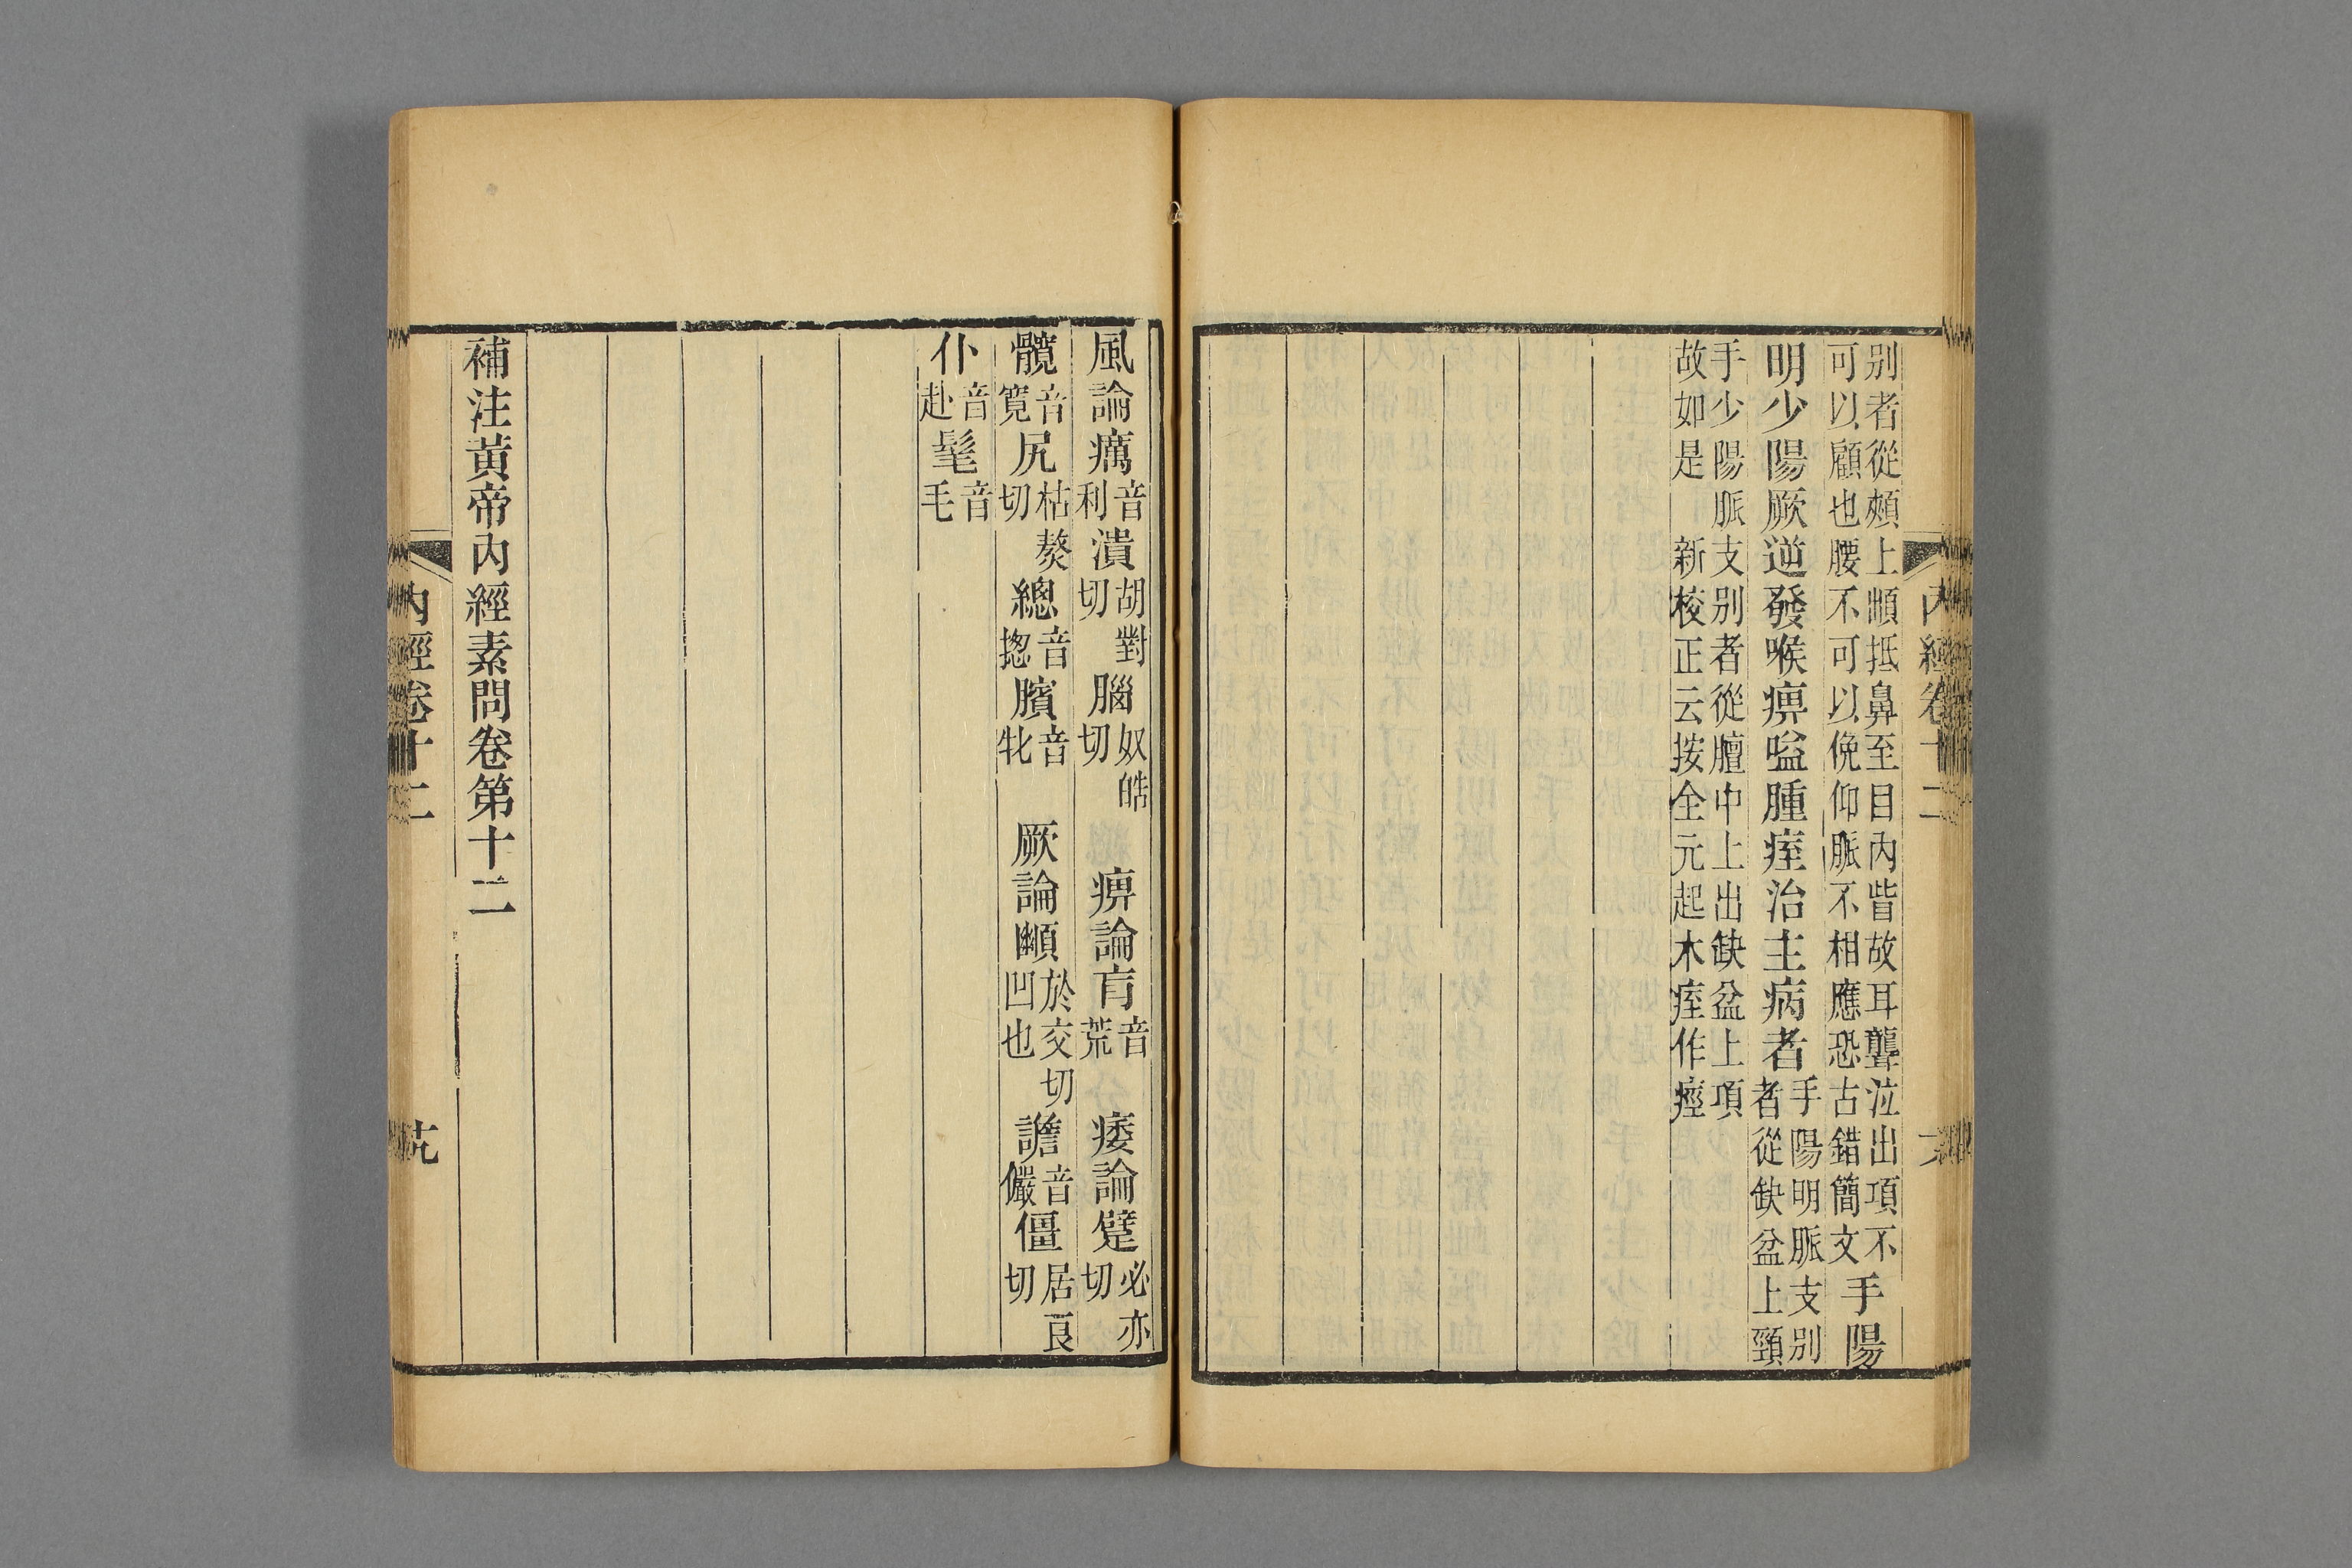 别者從頰上䪼抵鼻至目內眥故耳聾泣出項不
可以顧也腰不可以俛仰脈不相應恐古錯簡文
手陽
明少陽厥逆發喉痹嗌腫痓治主病者
手陽明脈支别
者從缺盆上頸
手少陽脈支别者從膻中上出缺盆上項
故如是 新校正云按全元起本痓作痙
內經卷十二
風論癘音利潰胡對切腦奴皓切 痹論肓音荒 痿論躄必亦切
髖音寬尻枯熬切總音揔臏音牝 厥論䪼於交切凹也譫音儼僵居良切
仆音赴髦音毛
補注黃帝內經素問卷第十二
內經卷十二